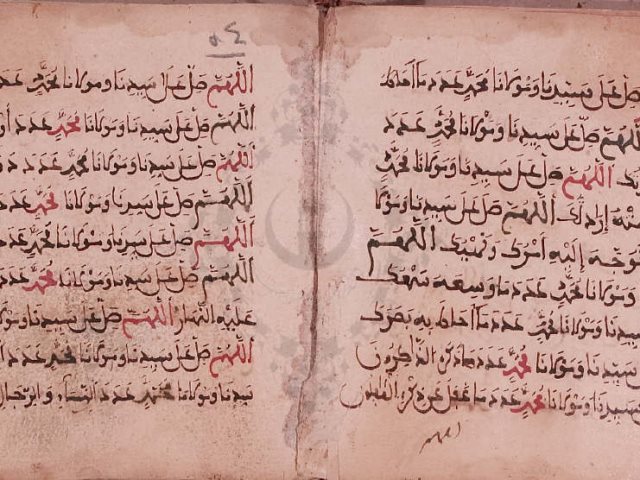 صل على سيدنا ومولانا محمد عدد ما أحاط
اللهم صل على سيدنا ومولانا محمد عدد
اللهم صل على سيدنا ومولانا محمد
اللهم صل على سيدنا ومولانا
توجه إليه أمرك ونهيك اللهم
سيدنا ومولانا محمد عدد ما وسعه سمعك
سيدنا ومولانا محمد عدد ما أحاط به بصرك
سيدنا ومولانا محمد عدد ما ذكره الذاكرون
سيدنا ومولانا محمد عدد ما غفل عن ذكره الغافلون
اللهم
٥٤
اللهم صل على سيدنا ومولانا محمد عدد
اللهم صل على سيدنا ومولانا محمد عدد
اللهم صل على سيدنا ومولانا محمد عدد
اللهم صل على سيدنا ومولانا محمد عدد
اللهم صل على سيدنا ومولانا محمد عدد
اللهم صل على سيدنا ومولانا محمد عدد
عليه النهار اللهم صل على سيدنا
اللهم صل على سيدنا ومولانا محمد عدد
سيدنا ومولانا محمد عدد النساء والرجال